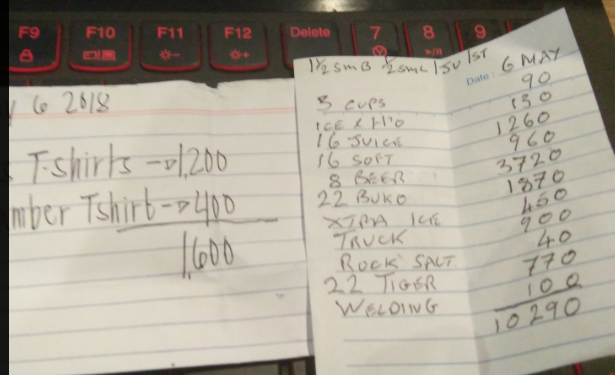 F9 F10 F11 F12 Delete 7 8 9
6 2018
T-shirts → 1,200
mber Tshirt → 400
1,600
1½ smB ½ smL
Date: 6 MAY
3 CUPS 90
ICE & H2O 130
16 JUICE 1260
16 SOFT 960
8 BEER 3720
22 BUKO 1870
XTRA ICE 450
TRUCK 900
ROCK SALT 40
22 TIGER 770
WELDING 100
10290